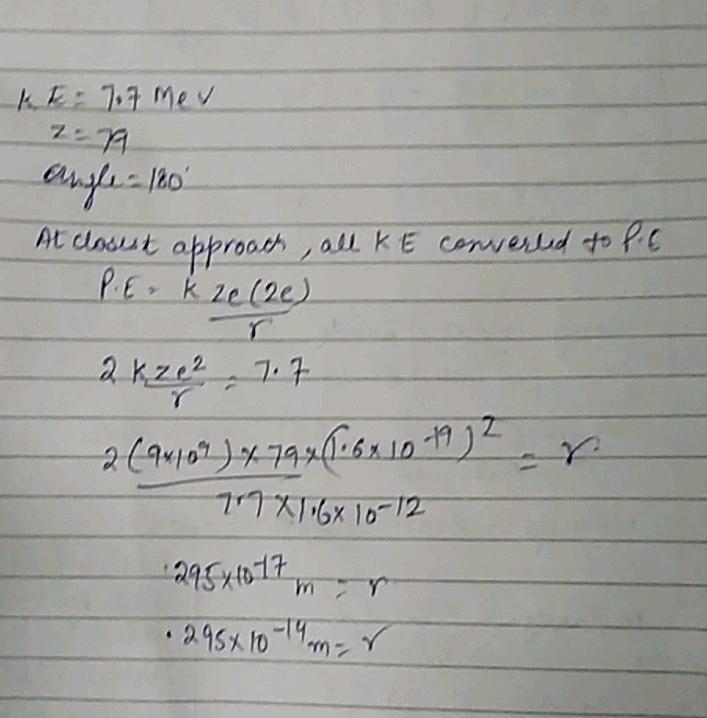 KE = 7.7 Mev
z = 79
angle = 180°
At closest approach, all KE converted to P.E
P.E = k ze(2e)/r
2 kze²/r = 7.7
2(9x10⁹) x 79 x (1.6x10⁻¹⁹)²/7.7 x 1.6 x 10⁻¹² = r
.295x10⁻¹⁷ m = r
.295x10⁻¹⁴ m = r